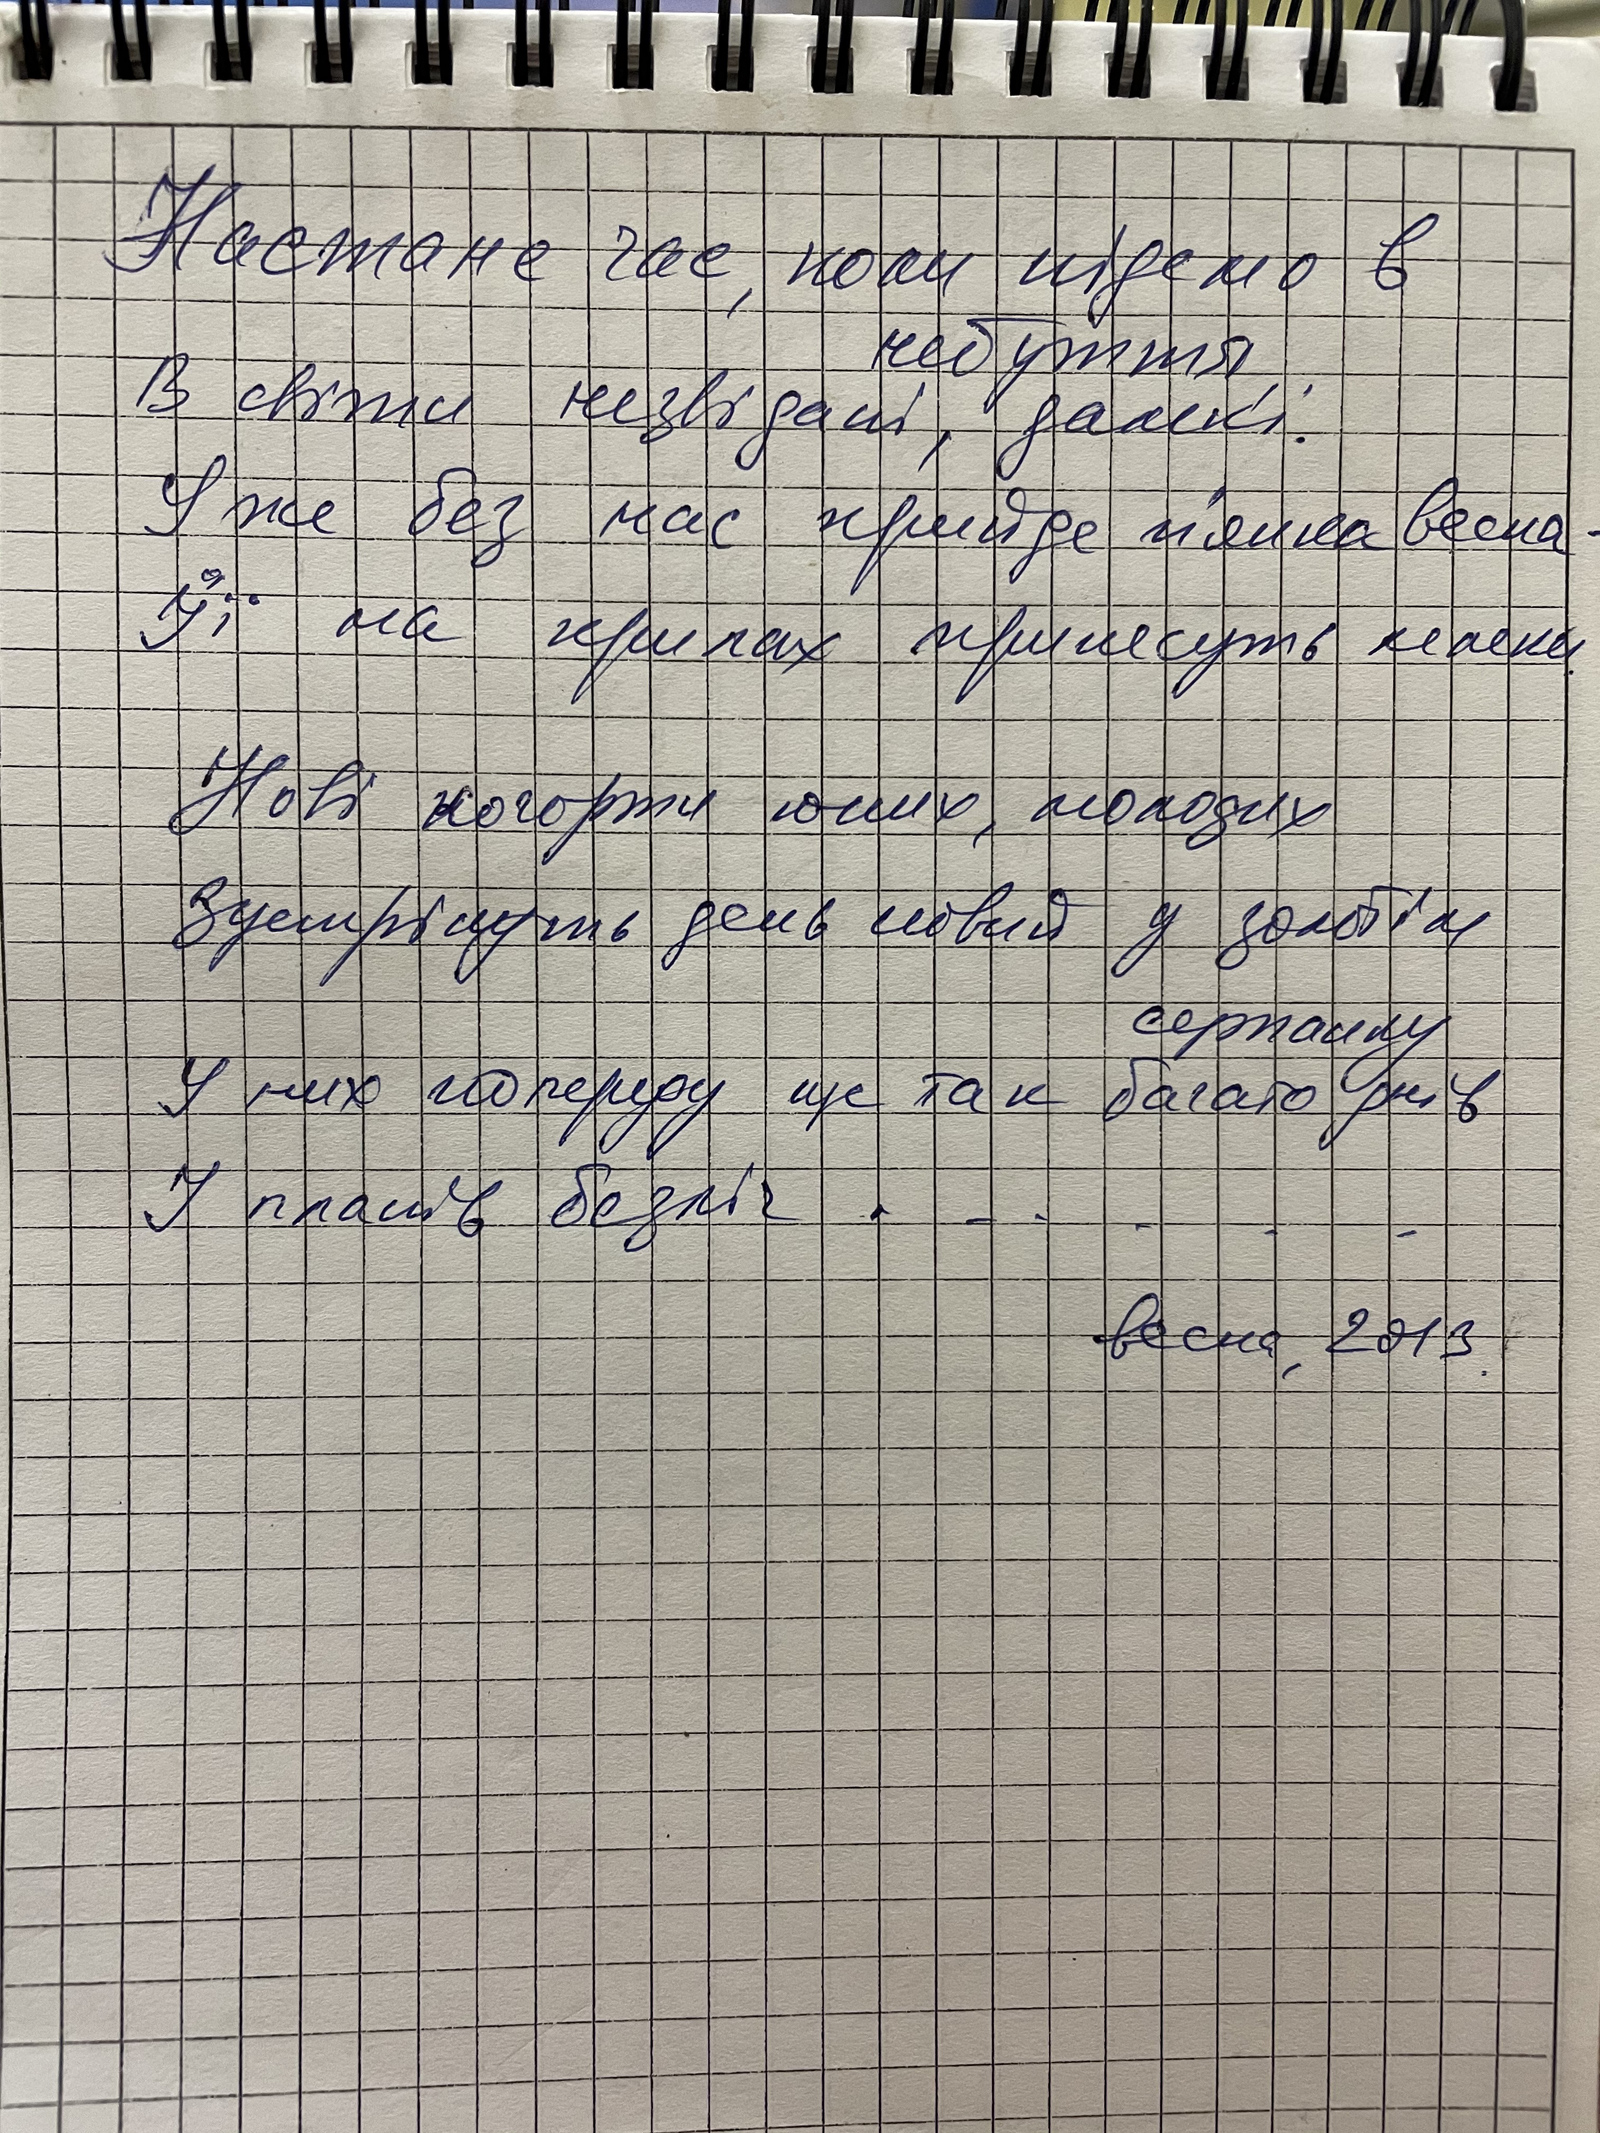 Настане час, коли підемо в
небуття
В світи незвідані, далекі.
Уже без нас прийде п'янка весна -
Її на крилах принесуть лелеки.
Нові когорти юних, молодих
Зустрінуть день новий у золотім
серпанку
У них попереду ще так багато днів
І планів безліч . - - - - -
весна, 2013.